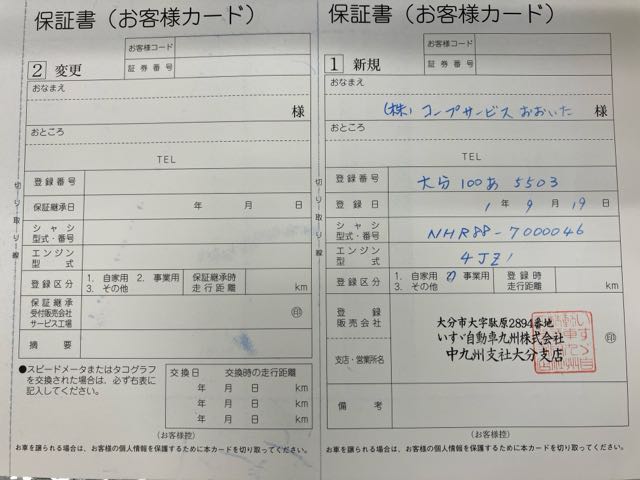 保証書(お客様カード)
お客様コード
2 変更
証券番号
おなまえ
様
おところ
TEL
登録番号
保証継承日 年 月 日
シャシ
型式・番号
エンジン
型式
登録区分 1. 自家用 2. 事業用
3. その他
保証継承時
走行距離 km
保証継承
受付販売会社
サービス工場
印
摘要
●スピードメータまたはタコグラフ
を交換された場合は、必ず右表に
記入してください。
交換日 交換時の走行距離
年 月 日 km
年 月 日 km
年 月 日 km
(お客様控)
お車を譲られる場合は、お客様の個人情報を保護するために本カードを切り取ってください。
切り取り線
保証書(お客様カード)
お客様コード
1 新規
証券番号
おなまえ
(株)コープサービスおおいた 様
おところ
TEL
登録番号 大分100あ5503
登録日 1年9月19日
シャシ
型式・番号 NHR88-7000046
エンジン
型式 4JZ1
登録区分 1. 自家用 2 事業用
3. その他
登録時
走行距離 km
登録
販売会社
支店・営業所名
大分市大字駄原2894番地
いすゞ自動車九州株式会社
中九州支社大分支店
印
備考
(お客様控)
お車を譲られる場合は、お客様の個人情報を保護するために本カードを切り取ってください。
切り取り線